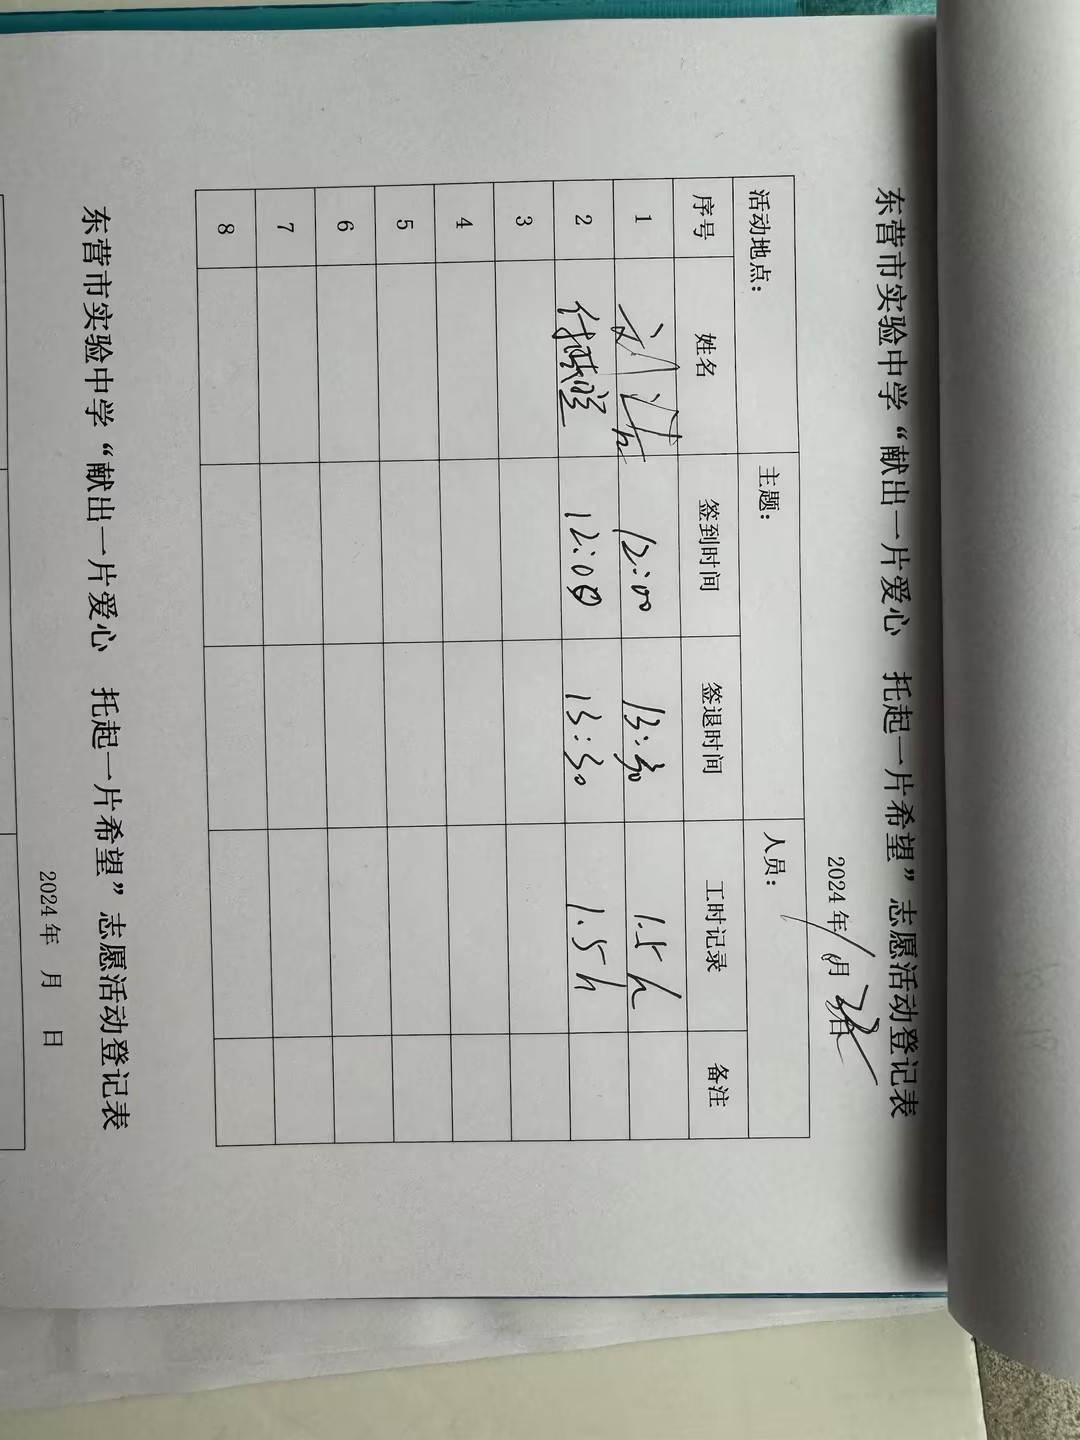 东营市实验中学“献出一片爱心 托起一片希望”志愿活动登记表
2024年 月 日
活动地点: 主题: 人员:
序号 姓名 签到时间 签退时间 工时记录 备注
1 刘 12:00 13:30 1.5h
2 12:00 13:30 1.5h
3
4
5
6
7
8
东营市实验中学“献出一片爱心 托起一片希望”志愿活动登记表
2024年 月 日